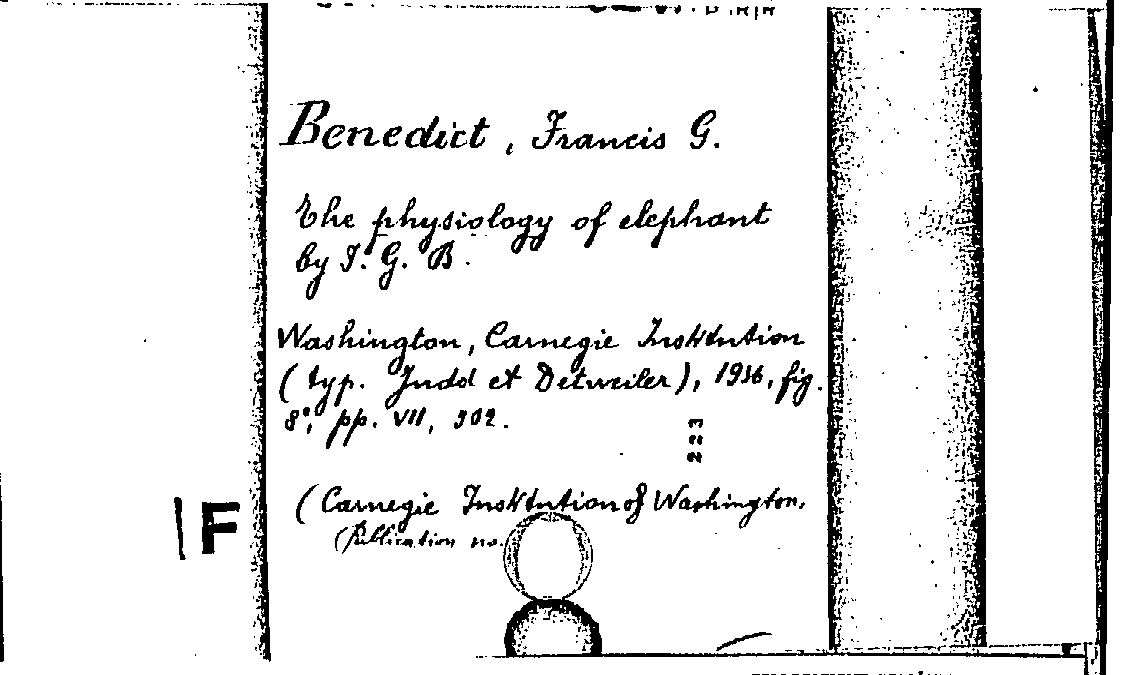 Benedict, Francis G.
The physiology of elephant
by F. G. B.
Washington, Carnegie Institution
(typ. Judd et Detweiler), 1936, fig.
8°, pp. VII, 302.
223
(Carnegie Institution of Washington.
(Publication no.
F